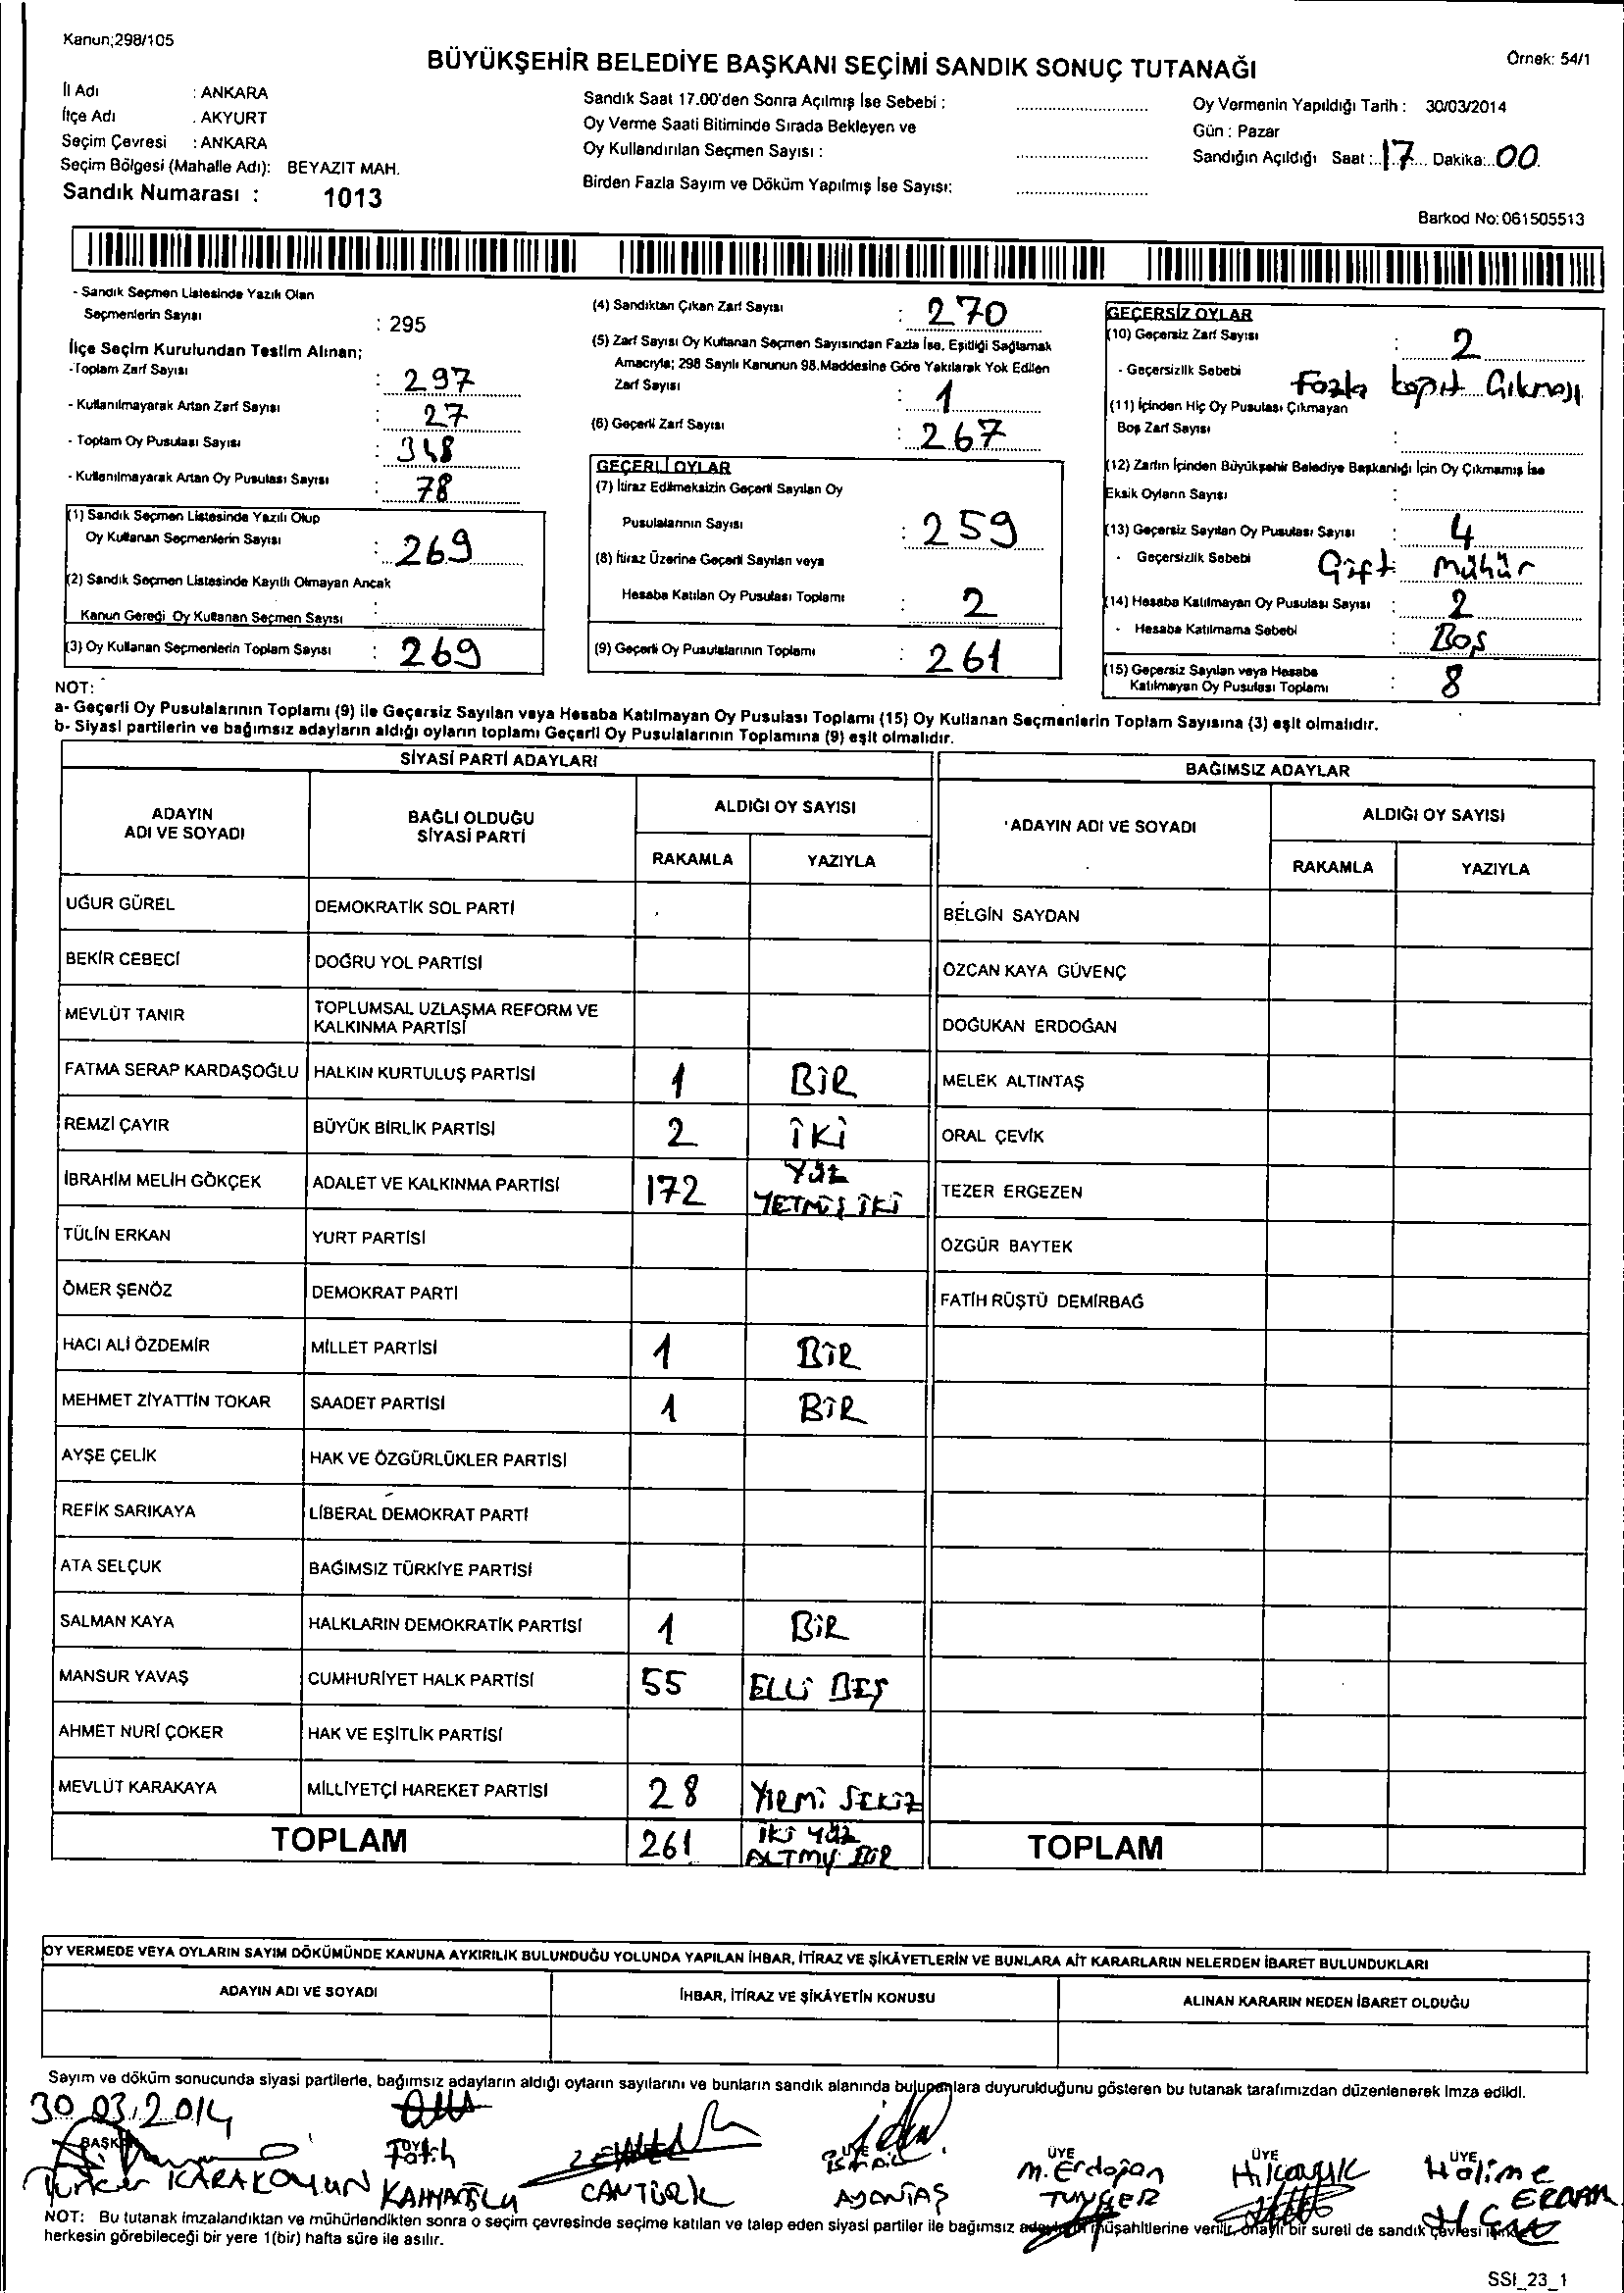 Kanun;298/105
BÜYÜKŞEHİR BELEDİYE BAŞKANI SEÇİMİ SANDIK SONUÇ TUTANAĞI
Örnek: 54/1
İl Adı : ANKARA
İlçe Adı . AKYURT
Seçim Çevresi : ANKARA
Seçim Bölgesi (Mahalle Adı): BEYAZIT MAH.
Sandık Numarası : 1013
Sandık Saat 17.00'den Sonra Açılmış İse Sebebi :
Oy Verme Saati Bitiminde Sırada Bekleyen ve
Oy Kullandırılan Seçmen Sayısı :
Birden Fazla Sayım ve Döküm Yapılmış İse Sayısı:
Oy Vermenin Yapıldığı Tarih : 30/03/2014
Gün : Pazar
Sandığın Açıldığı Saat : 17 Dakika: 00
Barkod No: 061505513
- Sandık Seçmen Listesinde Yazılı Olan
Seçmenlerin Sayısı : 295
İlçe Seçim Kurulundan Teslim Alınan;
-Toplam Zarf Sayısı : 297
- Kullanılmayarak Artan Zarf Sayısı : 27
- Toplam Oy Pusulası Sayısı : 348
- Kullanılmayarak Artan Oy Pusulası Sayısı : 78
(1) Sandık Seçmen Listesinde Yazılı Olup
Oy Kullanan Seçmenlerin Sayısı : 269
(2) Sandık Seçmen Listesinde Kayıtlı Olmayan Ancak
Kanun Gereği Oy Kullanan Seçmen Sayısı :
(3) Oy Kullanan Seçmenlerin Toplam Sayısı : 269
(4) Sandıktan Çıkan Zarf Sayısı : 270
(5) Zarf Sayısı Oy Kullanan Seçmen Sayısından Fazla İse, Eşitliği Sağlamak
Amacıyla; 298 Sayılı Kanunun 98.Maddesine Göre Yakılarak Yok Edilen
Zarf Sayısı : 1
(6) Geçerli Zarf Sayısı : 267
GEÇERLİ OYLAR
(7) İtiraz Edilmeksizin Geçerli Sayılan Oy
Pusulalarının Sayısı : 259
(8) İtiraz Üzerine Geçerli Sayılan veya
Hesaba Katılan Oy Pusulası Toplamı : 2
(9) Geçerli Oy Pusulalarının Toplamı : 261
GEÇERSİZ OYLAR
(10) Geçersiz Zarf Sayısı : 2
- Geçersizlik Sebebi Fazla kapıt Çıkması
(11) İçinden Hiç Oy Pusulası Çıkmayan
Boş Zarf Sayısı :
(12) Zarfın İçinden Büyükşehir Belediye Başkanlığı İçin Oy Çıkmamış İse
Eksik Oyların Sayısı :
(13) Geçersiz Sayılan Oy Pusulası Sayısı : 4
- Geçersizlik Sebebi Çift mühür
(14) Hesaba Katılmayan Oy Pusulası Sayısı : 2
- Hesaba Katılmama Sebebi : Boş
(15) Geçersiz Sayılan veya Hesaba
Katılmayan Oy Pusulası Toplamı : 8
NOT:
a- Geçerli Oy Pusulalarının Toplamı (9) ile Geçersiz Sayılan veya Hesaba Katılmayan Oy Pusulası Toplamı (15) Oy Kullanan Seçmenlerin Toplam Sayısına (3) eşit olmalıdır.
b- Siyasi partilerin ve bağımsız adayların aldığı oyların toplamı Geçerli Oy Pusulalarının Toplamına (9) eşit olmalıdır.
SİYASİ PARTİ ADAYLARI
ADAYIN ADI VE SOYADI BAĞLI OLDUĞU SİYASİ PARTİ ALDIĞI OY SAYISI
RAKAMLA YAZIYLA
UĞUR GÜREL DEMOKRATİK SOL PARTİ
BEKİR CEBECİ DOĞRU YOL PARTİSİ
MEVLÜT TANIR TOPLUMSAL UZLAŞMA REFORM VE
KALKINMA PARTİSİ
FATMA SERAP KARDAŞOĞLU HALKIN KURTULUŞ PARTİSİ 1 BİR
REMZİ ÇAYIR BÜYÜK BİRLİK PARTİSİ 2 İKİ
İBRAHİM MELİH GÖKÇEK ADALET VE KALKINMA PARTİSİ 172 YÜZ
YETMİŞ İKİ
TÜLİN ERKAN YURT PARTİSİ
ÖMER ŞENÖZ DEMOKRAT PARTİ
HACI ALİ ÖZDEMİR MİLLET PARTİSİ 1 BİR
MEHMET ZİYATTİN TOKAR SAADET PARTİSİ 1 BİR
AYŞE ÇELİK HAK VE ÖZGÜRLÜKLER PARTİSİ
REFİK SARIKAYA LİBERAL DEMOKRAT PARTİ
ATA SELÇUK BAĞIMSIZ TÜRKİYE PARTİSİ
SALMAN KAYA HALKLARIN DEMOKRATİK PARTİSİ 1 BİR
MANSUR YAVAŞ CUMHURİYET HALK PARTİSİ 55 ELLİ BEŞ
AHMET NURİ ÇOKER HAK VE EŞİTLİK PARTİSİ
MEVLÜT KARAKAYA MİLLİYETÇİ HAREKET PARTİSİ 28 YİRMİ SEKİZ
TOPLAM 261 İKİ YÜZ
ALTMIŞ BİR
BAĞIMSIZ ADAYLAR
ADAYIN ADI VE SOYADI ALDIĞI OY SAYISI
RAKAMLA YAZIYLA
BELGİN SAYDAN
ÖZCAN KAYA GÜVENÇ
DOĞUKAN ERDOĞAN
MELEK ALTINTAŞ
ORAL ÇEVİK
TEZER ERGEZEN
ÖZGÜR BAYTEK
FATİH RÜŞTÜ DEMİRBAĞ
TOPLAM
OY VERMEDE VEYA OYLARIN SAYIM DÖKÜMÜNDE KANUNA AYKIRILIK BULUNDUĞU YOLUNDA YAPILAN İHBAR, İTİRAZ VE ŞİKÂYETLERİN VE BUNLARA AİT KARARLARIN NELERDEN İBARET BULUNDUKLARI
ADAYIN ADI VE SOYADI İHBAR, İTİRAZ VE ŞİKÂYETİN KONUSU ALINAN KARARIN NEDEN İBARET OLDUĞU
Sayım ve döküm sonucunda siyasi partilerle, bağımsız adayların aldığı oyların sayılarını ve bunların sandık alanında bulunanlara duyurulduğunu gösteren bu tutanak tarafımızdan düzenlenerek imza edildi.
30.03.2014
BAŞKAN ÜYE ÜYE ÜYE ÜYE ÜYE
Fatih M.Erdoğan Halime
KARAKOYUN CANTÜRK TUNÇER ERCAN
NOT: Bu tutanak imzalandıktan ve mühürlendikten sonra o seçim çevresinde seçime katılan ve talep eden siyasi partiler ile bağımsız adayların müşahitlerine verilir, onaylı bir sureti de sandık çevresi
herkesin görebileceği bir yere 1(bir) hafta süre ile asılır.
SSI_23_1